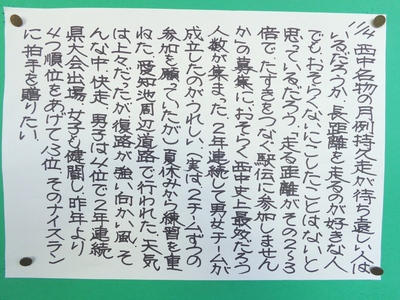 11/4 西中名物の月例持久走が待ち遠しい人は
いるだろうか。長距離を走るのが好きな人
でもおそらくないにこしたことはないと
思っているだろう。「走る距離がその2〜3
倍で、たすきをつなぐ駅伝に参加しません
か」の募集に、おそらく西中史上最多だろう
人数が集まった。2年連続して男女チームが
成立したのがうれしい。実は2チームずつの
参加を願っていたが…夏休みから練習を重
ねた。愛知池周辺道路で行われた。天気
は上々だったが復路が強い向かい風、そ
んな中、快走、男子は4位で2年連続
県大会出場、女子も健闘し昨年より
4つ順位をあげて13位、そのナイスラン
に拍手を贈りたい。